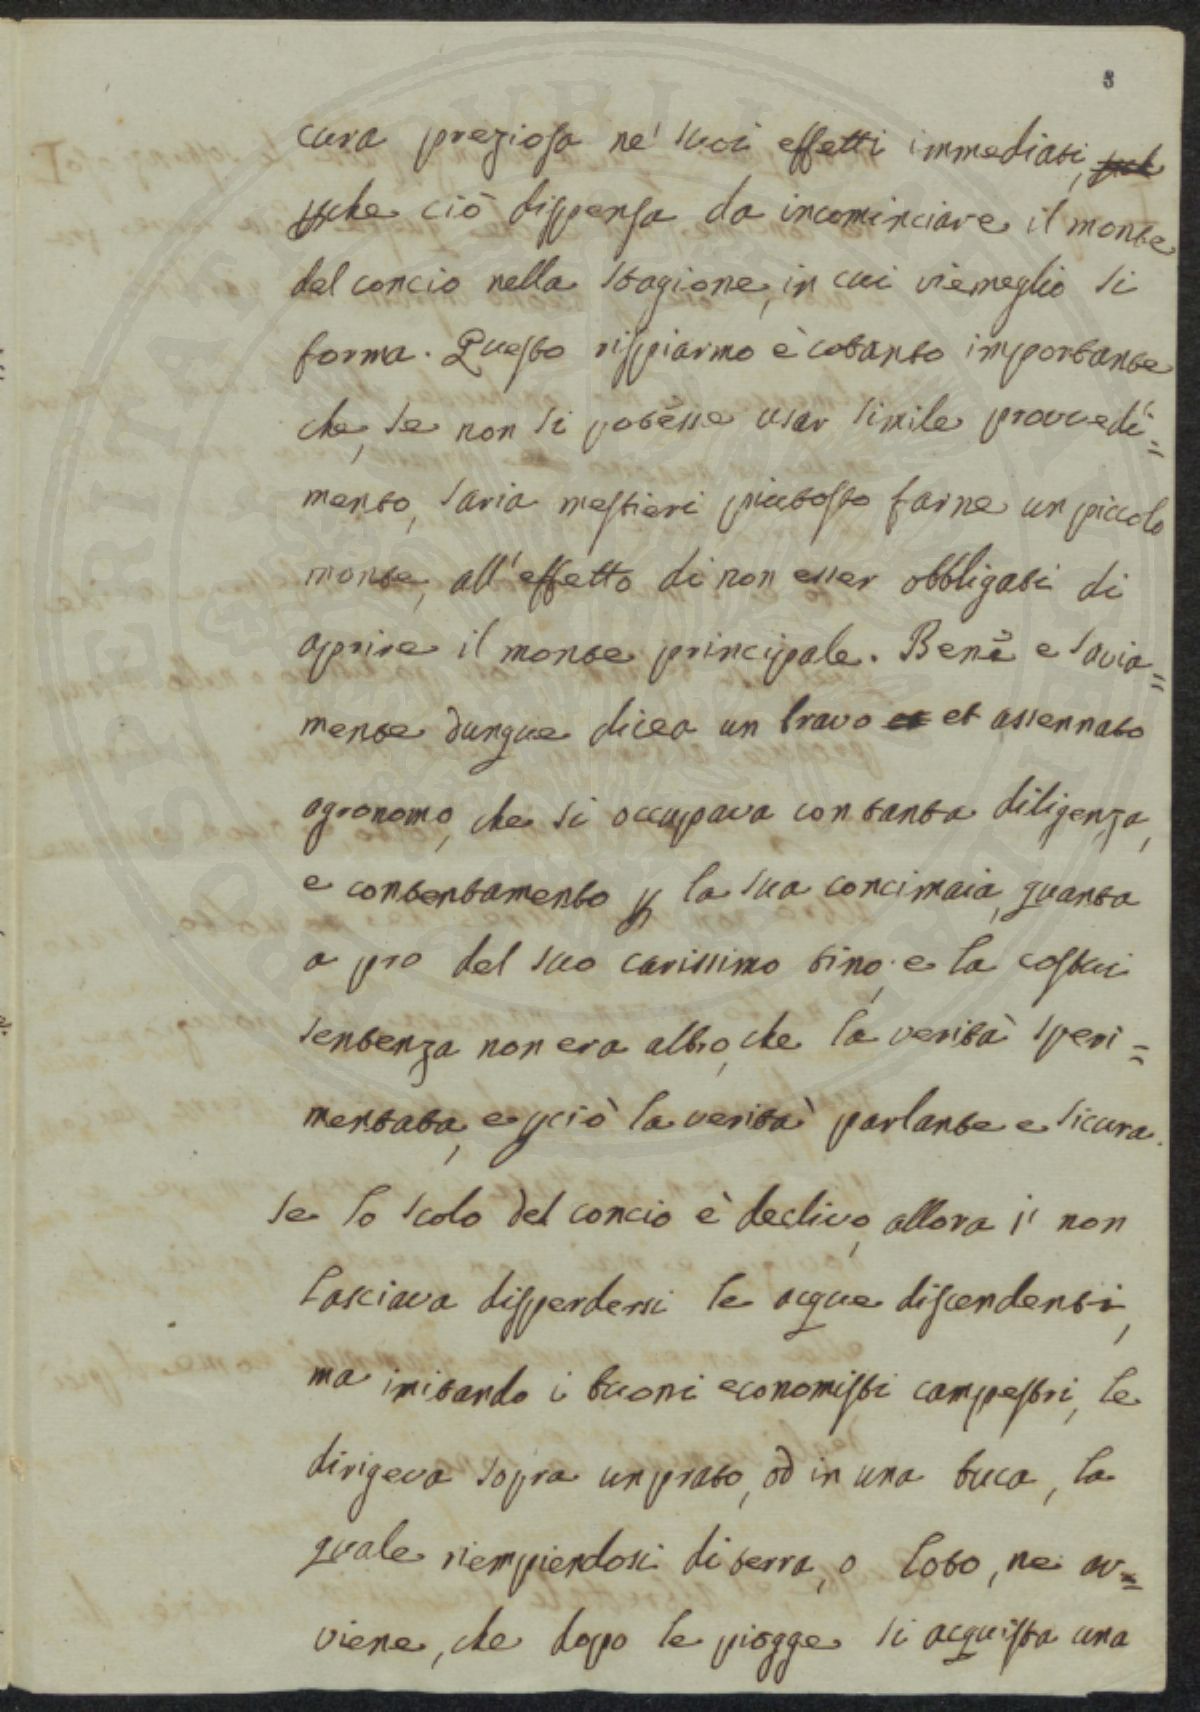 5
cura preziosa ne' suoi effetti immediati,
che ciò dispensa da incominciare il monte
del concio nella stagione, in cui viemeglio si
forma. Questo risparmio è cotanto importante
che, se non si potesse usar simile provvedi=
mento, saria mestieri piuttosto farne un piccolo
monte, all'effetto di non esser obbligati di
aprire il monte principale. Bene e savia=
mente dunque dicea un bravo et assennato
agronomo, che si occupava con tanta diligenza,
e contentamento p la sua concimaia, quanta
a pro del suo carissimo tino; e la costui
sentenza non era altro, che la verità speri=
mentata, e pciò la verità parlante e sicura.
Se lo scolo del concio è declivo, allora i' non
lasciava disperdersi le acque discendenti,
ma imitando i buoni economisti campestri, le
dirigeva sopra un prato, od in una buca, la
quale riempiendosi di terra, o loto, ne av=
viene, che dopo le piogge si acquista una